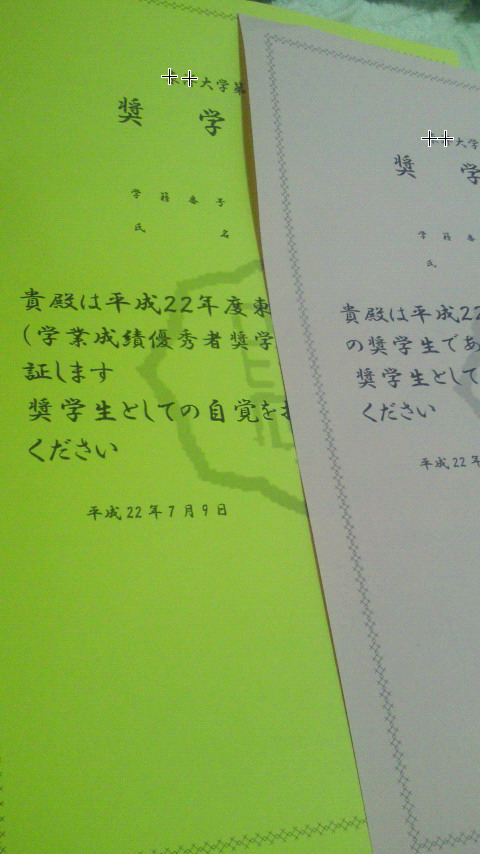 大学第
奨学
学籍番号
氏名
貴殿は平成22年度東
(学業成績優秀者奨学
証します
奨学生としての自覚を
ください
平成22年7月9日
大学
奨学
学籍
氏
貴殿は平成22
の奨学生であ
奨学生として
ください
平成22年